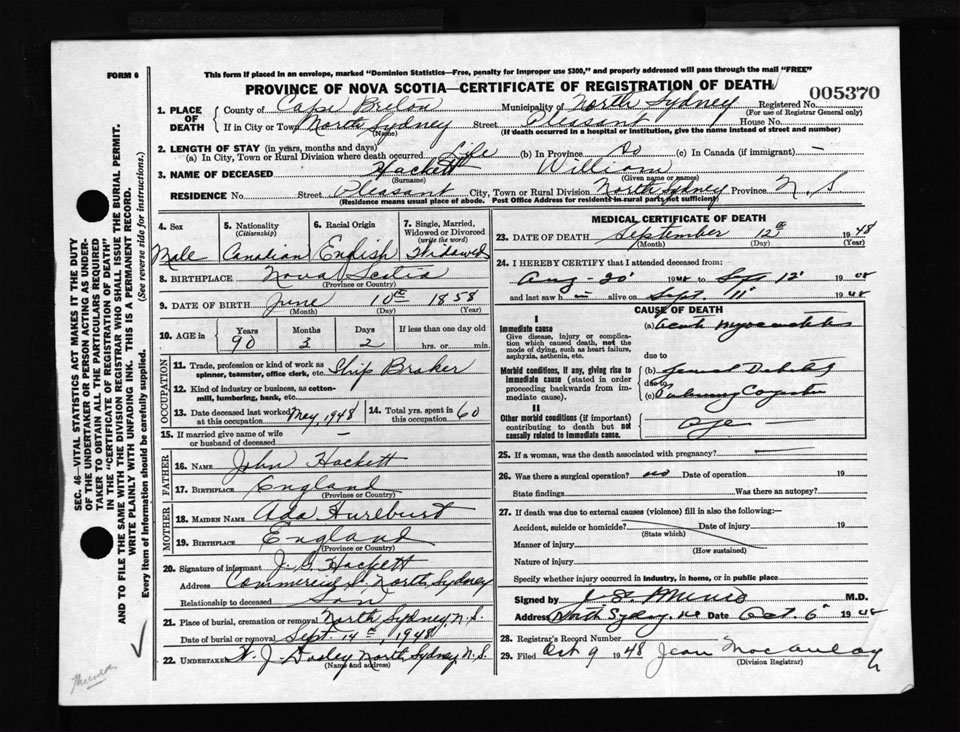 FORM 6
This form if placed in an envelope, marked "Dominion Statistics—Free, penalty for improper use $300," and properly addressed will pass through the mail "FREE"
PROVINCE OF NOVA SCOTIA—CERTIFICATE OF REGISTRATION OF DEATH
005370
1. PLACE OF DEATH County of Cape Breton Municipality of North Sydney Registered No.
(For use of Registrar General only)
If in City or Town North Sydney Street Pleasant House No.
(Name) (If death occurred in a hospital or institution, give the name instead of street and number)
2. LENGTH OF STAY (in years, months and days)
(a) In City, Town or Rural Division where death occurred Life (b) In Province Do (c) In Canada (if immigrant) —
3. NAME OF DECEASED Hackett William
(Surname) (Given name or names)
RESIDENCE No. Street Pleasant City, Town or Rural Division North Sydney Province N.S
(Residence means usual place of abode. Post Office Address for residents in rural parts not sufficient)
SEC. 46—VITAL STATISTICS ACT MAKES IT THE DUTY
OF THE UNDERTAKER OR PERSON ACTING AS UNDER-
TAKER TO OBTAIN ALL THE PARTICULARS REQUIRED
IN THE "CERTIFICATE OF REGISTRATION OF DEATH"
AND TO FILE THE SAME WITH THE DIVISION REGISTRAR WHO SHALL ISSUE THE BURIAL PERMIT.
WRITE PLAINLY WITH UNFADING INK. THIS IS A PERMANENT RECORD.
Every item of Information should be carefully supplied. (See reverse side for instructions.)
4. Sex 5. Nationality (Citizenship) 6. Racial Origin 7. Single, Married, Widowed or Divorced (write the word)
Male Canadian English Widowed
8. BIRTHPLACE Nova Scotia
(Province or Country)
9. DATE OF BIRTH June 10th 1858
(Month) (Day) (Year)
10. AGE in? Years Months Days If less than one day old
90 3 2 hrs. or min.
OCCUPATION
11. Trade, profession or kind of work as spinner, teamster, office clerk, etc. Ship Broker
12. Kind of industry or business, as cotton-mill, lumbering, bank, etc.
13. Date deceased last worked at this occupation May, 1948 14. Total yrs. spent in this occupation 60
15. If married give name of wife or husband of deceased —
FATHER
16. NAME John Hackett
17. BIRTHPLACE England
(Province or Country)
MOTHER
18. MAIDEN NAME Ada Hurlburt
19. BIRTHPLACE England
(Province or Country)
20. Signature of informant J. C. Hackett
Address Commercial St. North Sydney
Relationship to deceased Son
21. Place of burial, cremation or removal North Sydney, N.S.
Date of burial or removal Sept 14th, 1948
22. UNDERTAKER W. J. Dooley North Sydney, N.S.
(Name and address)
MEDICAL CERTIFICATE OF DEATH
23. DATE OF DEATH September 12th 1948
(Month) (Day) (Year)
24. I HEREBY CERTIFY that I attended deceased from:
Aug - 20 1948 to Sep 12 1948
and last saw h im alive on Sept. 11 1948
CAUSE OF DEATH
I
Immediate cause (a) Acute Myocarditis
Give disease, injury or complication which caused death, not the mode of dying, such as heart failure, asphyxia, asthenia, etc.
due to
Morbid conditions, if any, giving rise to immediate cause (stated in order proceeding backwards from immediate cause). (b) General Debility
due to
(c) Pulmonary Congestion
II
Other morbid conditions (if important) contributing to death but not causally related to immediate cause. Age —
25. If a woman, was the death associated with pregnancy? —
26. Was there a surgical operation? no Date of operation 19
State findings Was there an autopsy?
27. If death was due to external causes (violence) fill in also the following:—
Accident, suicide or homicide? Date of injury 19
(State which)
Manner of injury
(How sustained)
Nature of injury
Specify whether injury occurred in industry, in home, or in public place
Signed by M.D.
Address North Sydney, NS Date Oct. 6 1948
28. Registrar's Record Number
29. Filed Oct 9 1948 Jean MacAulay
(Division Registrar)